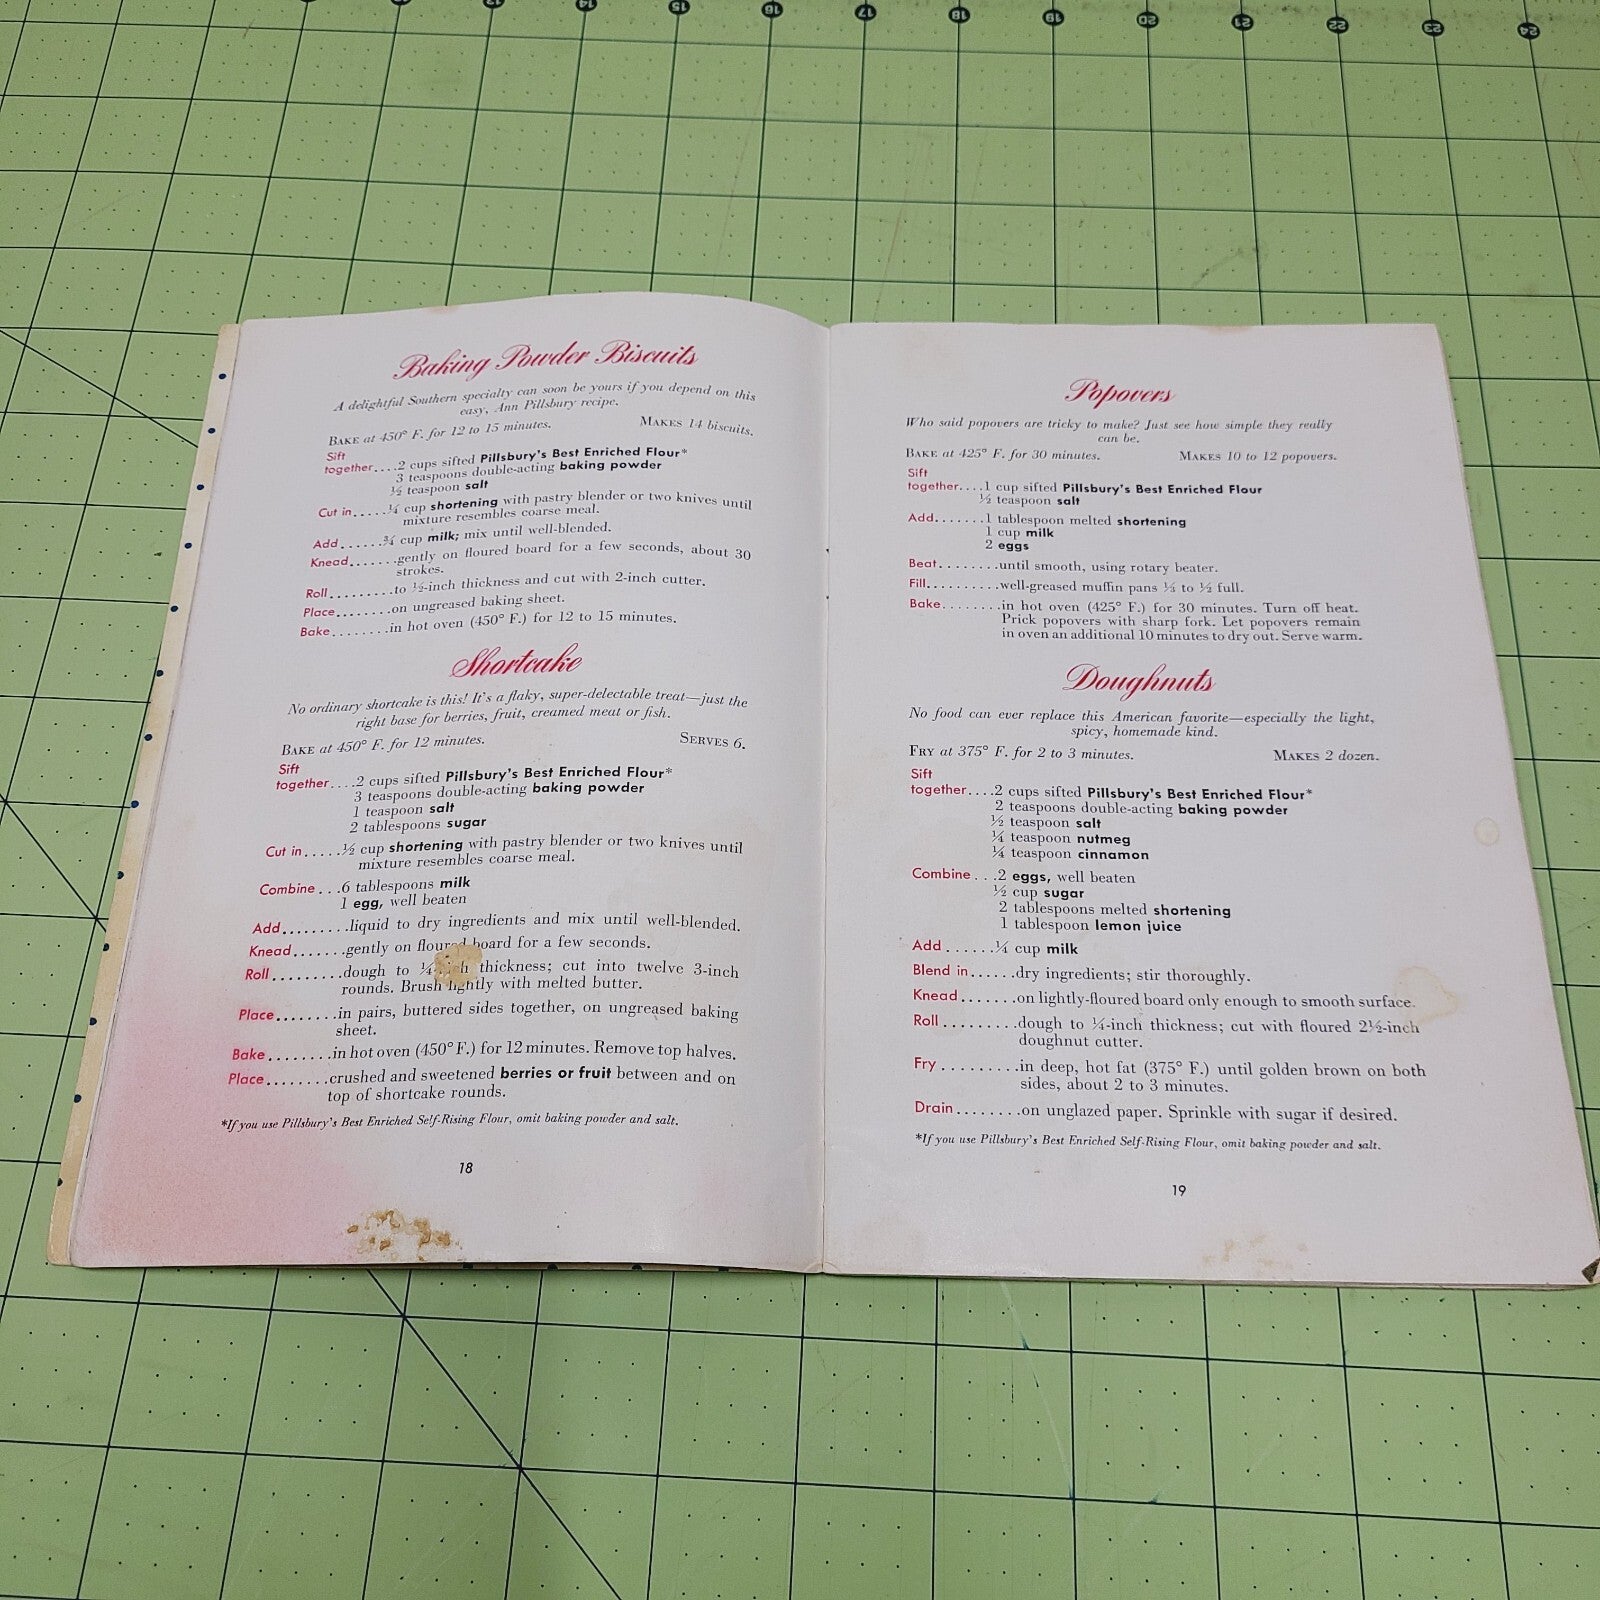 12
13
14
15
16
17
18
19
20
21
22
23
24
Baking Powder Biscuits
A delightful Southern specialty can soon be yours if you depend on this
easy, Ann Pillsbury recipe.
BAKE at 450° F. for 12 to 15 minutes. MAKES 14 biscuits.
Sift
together....2 cups sifted Pillsbury's Best Enriched Flour*
3 teaspoons double-acting baking powder
½ teaspoon salt
Cut in.....¼ cup shortening with pastry blender or two knives until
mixture resembles coarse meal.
Add......¾ cup milk; mix until well-blended.
Knead.......gently on floured board for a few seconds, about 30
strokes.
Roll.........to ½-inch thickness and cut with 2-inch cutter.
Place........on ungreased baking sheet.
Bake........in hot oven (450° F.) for 12 to 15 minutes.
Shortcake
No ordinary shortcake is this! It's a flaky, super-delectable treat—just the
right base for berries, fruit, creamed meat or fish.
BAKE at 450° F. for 12 minutes. SERVES 6.
Sift
together....2 cups sifted Pillsbury's Best Enriched Flour*
3 teaspoons double-acting baking powder
1 teaspoon salt
2 tablespoons sugar
Cut in.....½ cup shortening with pastry blender or two knives until
mixture resembles coarse meal.
Combine...6 tablespoons milk
1 egg, well beaten
Add.........liquid to dry ingredients and mix until well-blended.
Knead.......gently on floured board for a few seconds.
Roll.........dough to ¼-inch thickness; cut into twelve 3-inch
rounds. Brush lightly with melted butter.
Place........in pairs, buttered sides together, on ungreased baking
sheet.
Bake........in hot oven (450° F.) for 12 minutes. Remove top halves.
Place........crushed and sweetened berries or fruit between and on
top of shortcake rounds.
*If you use Pillsbury's Best Enriched Self-Rising Flour, omit baking powder and salt.
18
Popovers
Who said popovers are tricky to make? Just see how simple they really
can be.
BAKE at 425° F. for 30 minutes. MAKES 10 to 12 popovers.
Sift
together....1 cup sifted Pillsbury's Best Enriched Flour
½ teaspoon salt
Add.......1 tablespoon melted shortening
1 cup milk
2 eggs
Beat........until smooth, using rotary beater.
Fill..........well-greased muffin pans ⅓ to ½ full.
Bake........in hot oven (425° F.) for 30 minutes. Turn off heat.
Prick popovers with sharp fork. Let popovers remain
in oven an additional 10 minutes to dry out. Serve warm.
Doughnuts
No food can ever replace this American favorite—especially the light,
spicy, homemade kind.
FRY at 375° F. for 2 to 3 minutes. MAKES 2 dozen.
Sift
together....2 cups sifted Pillsbury's Best Enriched Flour*
2 teaspoons double-acting baking powder
½ teaspoon salt
¼ teaspoon nutmeg
¼ teaspoon cinnamon
Combine...2 eggs, well beaten
½ cup sugar
2 tablespoons melted shortening
1 tablespoon lemon juice
Add......¼ cup milk
Blend in......dry ingredients; stir thoroughly.
Knead.......on lightly-floured board only enough to smooth surface.
Roll.........dough to ¼-inch thickness; cut with floured 2½-inch
doughnut cutter.
Fry..........in deep, hot fat (375° F.) until golden brown on both
sides, about 2 to 3 minutes.
Drain........on unglazed paper. Sprinkle with sugar if desired.
*If you use Pillsbury's Best Enriched Self-Rising Flour, omit baking powder and salt.
19